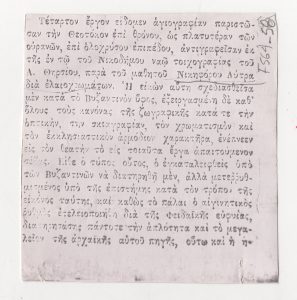 Τέταρτον ἔργον εἴδομεν ἁγιογραφίαν παριστῶ-
σαν τὴν Θεοτόκον ἐπὶ θρόνου, ὡς πλατυτέραν τῶν
οὐρανῶν, ἐπὶ ὁλοχρύσου ἐπιπέδου, ἀντιγραφεῖσαν ἐκ
τῆς ἐν τῷ τοῦ Νικοδήμου ναῷ τοιχογραφίας τοῦ
Λ. Θηρσίου, παρὰ τοῦ μαθητοῦ Νικηφόρου Λύτρα
διὰ ἐλαιοχρωμάτων. Ἡ εἰκὼν αὕτη σχεδιασθεῖσα
μὲν κατὰ τὸ Βυζαντινὸν ὕφος, ἐξειργασμένη δὲ καθ'
ὅλους τοὺς κανόνας τῆς ζωγραφικῆς κατά τε τὴν
ὀπτικήν, τὴν σκιαγραφίαν, τὸν χρωματισμὸν καὶ
τὸν ἐκκλησιαστικὸν ἁρμόδιον χαρακτῆρα, ἐνέπνεεν
εἰς τὸν θεατὴν τὸ εἰς τοιαῦτα ἔργα ἀπαιτούμενον
σέβας. Εἴθε ὁ τύπος οὗτος, ὁ ἐγκαταλειφθεὶς ὑπὸ
τῶν Βυζαντινῶν νὰ διατηρηθῇ μέν, ἀλλὰ μετερρυθ-
μισμένος ὑπὸ τῆς ἐπιστήμης κατὰ τὸν τρόπον τῆς
εἰκόνος ταύτης, καὶ καθὼς τὸ πάλαι ὁ αἰγινητικὸς
ῥυθμὸς ἐτελειοποιήθη διὰ τῆς Φειδιακῆς εὐφυίας,
διατηρήσας πάντοτε τὴν ἁπλότητα καὶ τὸ μεγα-
λεῖον τῆς ἀρχαϊκῆς αὐτοῦ πηγῆς, οὕτω καὶ ἡ ἡ-